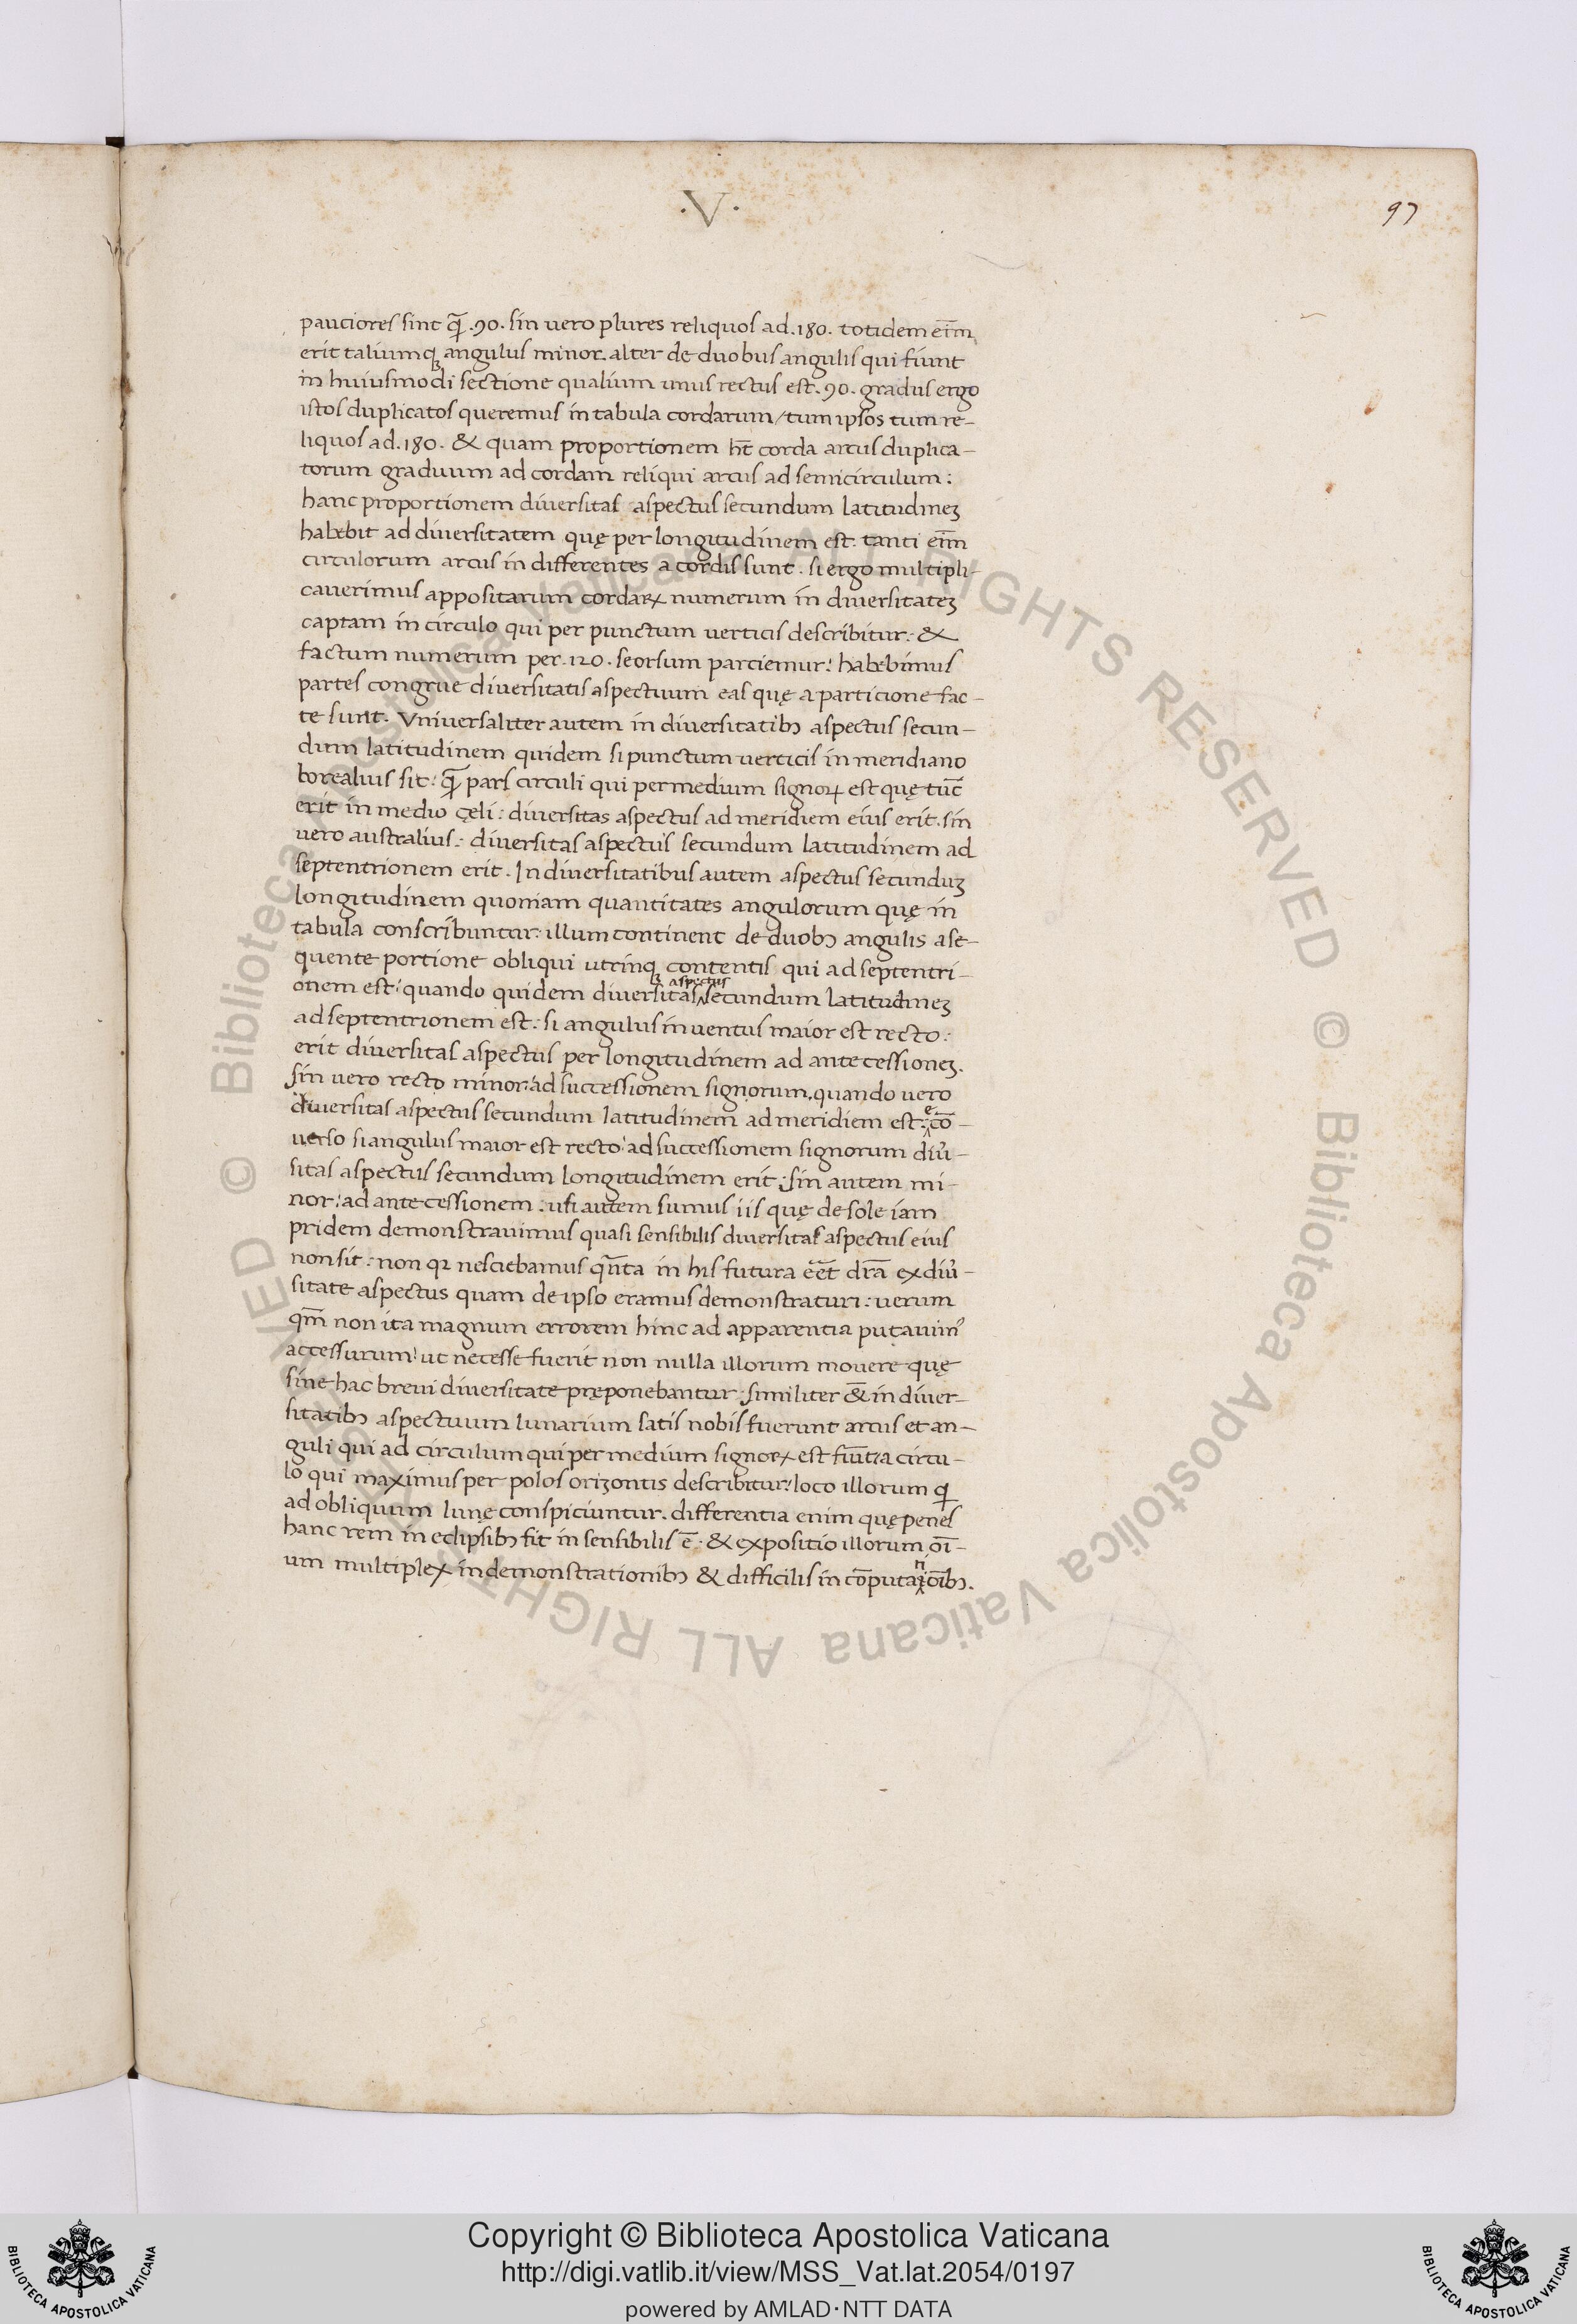 ·V·
97
pauciores sint q̃ .90. sin vero plures reliquos ad .180. totidem eim̃
erit taliumqꝫ angulus minor. alter de duobus angulis qui fiunt
in huiusmodi sectione qualium unus rectus est .90. gradus ergo
istos duplicatos queremus in tabula cordarum / tum ipsos tum re-
liquos ad .180. & quam proportionem ht̃ corda arcus duplica-
torum graduum ad cordam reliqui arcus ad semicirculum:
hanc proportionem diversitas aspectus secundum latitudineꝫ
habebit ad diversitatem quę per longitudinem est. tanti eim̃
circulorum arcus in differentes a cordis sunt. si ergo multipli-
caverimus appositarum cordaꝝ numerum in diversitateꝫ
captam in circulo qui per punctum verticis describitur: &
factum numerum per .120. seorsum partiemur: habebimus
partes congrue diversitatis aspectuum eas quę a particione fac-
te sunt. Universaliter autem in diversitatibꝫ aspectus secun-
dum latitudinem quidem si punctum verticis in meridiano
borealius sit: q̃ pars circuli qui per medium signoꝝ est quę tuc̃
erit in medio cęli: diversitas aspectus ad meridiem eius erit. sin
vero australius: diversitas aspectus secundum latitudinem ad
septentrionem erit. In diversitatibus autem aspectus secunduꝫ
longitudinem quoniam quantitates angulorum quę in
tabula conscribuntur: illum continent de duobꝫ angulis a se-
quente portione obliqui utrinqꝫ contentis qui ad septentri-
onem est: quando quidem diversitas aspectus secundum latitudineꝫ
ad septentrionem est: si angulus inventus maior est recto:
erit diversitas aspectus per longitudinem ad antecessioneꝫ.
sin vero recto minor: ad successionem signorum. quando vero
diversitas aspectus secundum latitudinem ad meridiem est: e cō-
verso si angulus maior est recto: ad successionem signorum diu᷑-
sitas aspectus secundum longitudinem erit: sin autem mi-
nor: ad antecessionem: usi autem sumus iis quę de sole iam
pridem demonstravimus quasi sensibilis diversitas aspectus eius
non sit: non qꝛ nesciebamus qñta in his futura eēt dr̃a ex diu᷑-
sitate aspectus quam de ipso eramus demonstraturi: verum
qm̃ non ita magnum errorem hinc ad apparentia putavimꝰ
accessurum: ut necesse fuerit non nulla illorum movere quę
sine hac brevi diversitate pręponebantur: similiter & in diver-
sitatibꝫ aspectuum lunarium satis nobis fuerunt arcus et an-
guli qui ad circulum qui per medium signoꝝ est fiūt a circu-
lo qui maximus per polos orizontis describitur: loco illorum q̇
ad obliquum lunę conspiciuntur. differentia enim quę penes
hanc rem in eclipsibꝫ fit in sensibilis ē. & expositio illorum oī-
um multiplex in demonstrationibꝫ & difficilis in cōputanoībꝫ.
Copyright © Biblioteca Apostolica Vaticana
http://digi.vatlib.it/view/MSS_Vat.lat.2054/0197
powered by AMLAD·NTT DATA
BIBLIOTECA APOSTOLICA VATICANA
BIBLIOTECA APOSTOLICA VATICANA
© Biblioteca Apostolica Vaticana ALL RIGHTS RESERVED © Biblioteca Apostolica Vaticana ALL RIGHTS RESERVED